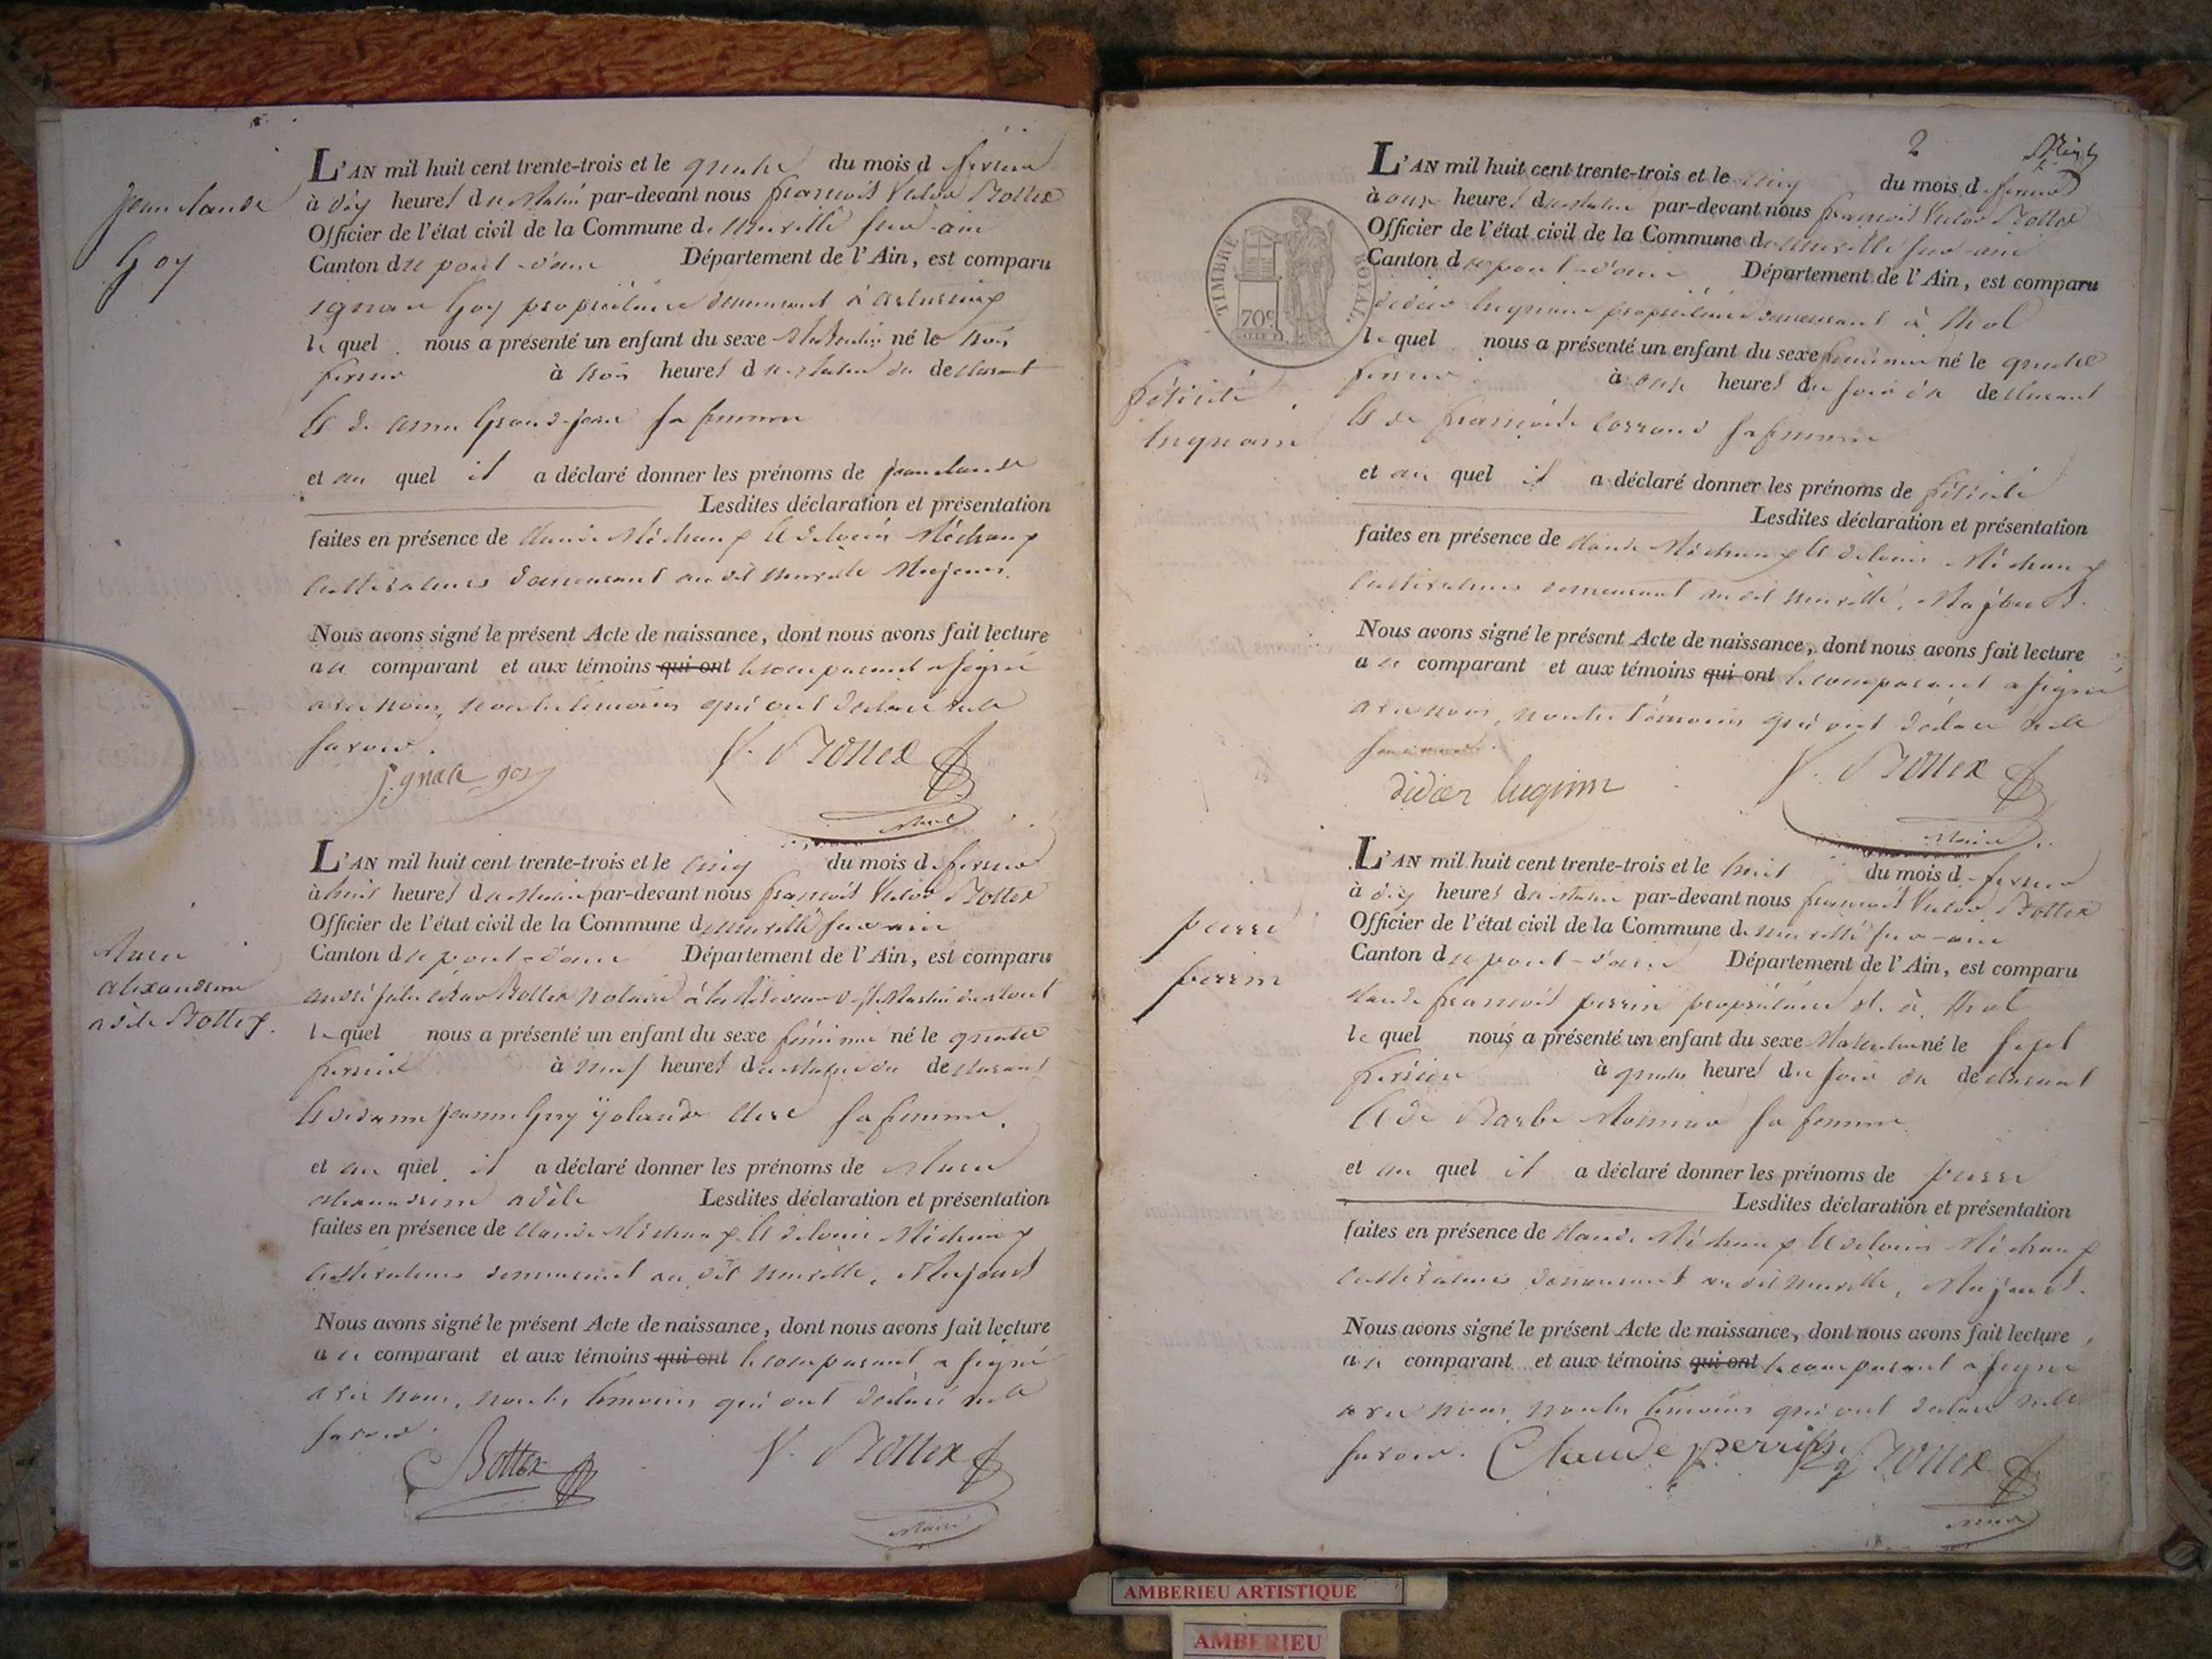 Jean claude
Goy
L'AN mil huit cent trente-trois et le quatre du mois d fevrier
à dix heures du Matin par-devant nous françois Victor Bottex
Officier de l'état civil de la Commune de Neuville sur-ain
Canton du pont-d'ain Département de l'Ain, est comparu
ignace Goy propriétaire demeurant à
le quel nous a présenté un enfant du sexe Masculin né le trois
fevrier à trois heures du Matin du declarant
Et de anne Grand-jean sa femme
et au quel il a déclaré donner les prénoms de jean claude
Lesdites déclaration et présentation
faites en présence de claude Michaux Et de louis Michaux
Cultivateurs demeurant au dit neuville Majeurs.
Nous avons signé le présent Acte de naissance, dont nous avons fait lecture
au comparant et aux témoins qui ont le comparant a signé
avec nous, non les témoins qui ont déclaré ne le
savoir.
ignace goy V. Bottex
Maire
Marie
alexandrine
adèle Bottex.
L'AN mil huit cent trente-trois et le cinq du mois d fevrier
à huit heures du Matin par-devant nous françois Victor Bottex
Officier de l'état civil de la Commune de neuville sur-ain
Canton du pont-d'ain Département de l'Ain, est comparu
andré jules Bottex notaire à la résidence de St Martin du Mont
le quel nous a présenté un enfant du sexe féminin né le quatre
fevrier à neuf heures du Matin du declarant
Et de dame jeanne Guy yolande sa femme.
et au quel il a déclaré donner les prénoms de Marie
alexandrine adèle Lesdites déclaration et présentation
faites en présence de claude Michaux Et de louis Michaux
Cultivateurs demeurant au dit neuville, Majeurs
Nous avons signé le présent Acte de naissance, dont nous avons fait lecture
au comparant et aux témoins qui ont le comparant a signé
avec nous, non les témoins qui ont déclaré ne le
savoir.
Bottex V. Bottex
Maire
2
TIMBRE ROYAL
70c
félicité
luquain
L'AN mil huit cent trente-trois et le cinq du mois d fevrier
à onze heures du Matin par-devant nous françois Victor Bottex
Officier de l'état civil de la Commune de neuville sur-ain
Canton du pont-d'ain Département de l'Ain, est comparu
didier luquain propriétaire demeurant à thol
le quel nous a présenté un enfant du sexe féminin né le quatre
fevrier à onze heures du soir du declarant
Et de françoise sa femme
et au quel il a déclaré donner les prénoms de félicité
Lesdites déclaration et présentation
faites en présence de claude Michaux Et de louis Michaux
Cultivateurs demeurant au dit neuville, Majeurs.
Nous avons signé le présent Acte de naissance, dont nous avons fait lecture
au comparant et aux témoins qui ont le comparant a signé
avec nous, non les témoins qui ont déclaré ne le
didier luginn V. Bottex
Maire
pierre
perrin
L'AN mil huit cent trente-trois et le huit du mois d fevrier
à dix heures du Matin par-devant nous françois Victor Bottex
Officier de l'état civil de la Commune de neuville sur-ain
Canton du pont-d'ain Département de l'Ain, est comparu
claude françois perrin propriétaire dt. à thol
le quel nous a présenté un enfant du sexe Masculin né le sept
fevrier à quatre heures du soir du declarant
Et de Barbe sa femme
et au quel il a déclaré donner les prénoms de pierre
Lesdites déclaration et présentation
faites en présence de claude Michaux Et de louis Michaux
Cultivateurs demeurant au dit neuville, Majeurs.
Nous avons signé le présent Acte de naissance, dont nous avons fait lecture
au comparant et aux témoins qui ont le comparant a signé
avec nous, non les témoins qui ont déclaré ne le
savoir. Claude perrin V. Bottex
Maire
AMBERIEU ARTISTIQUE
AMBERIEU